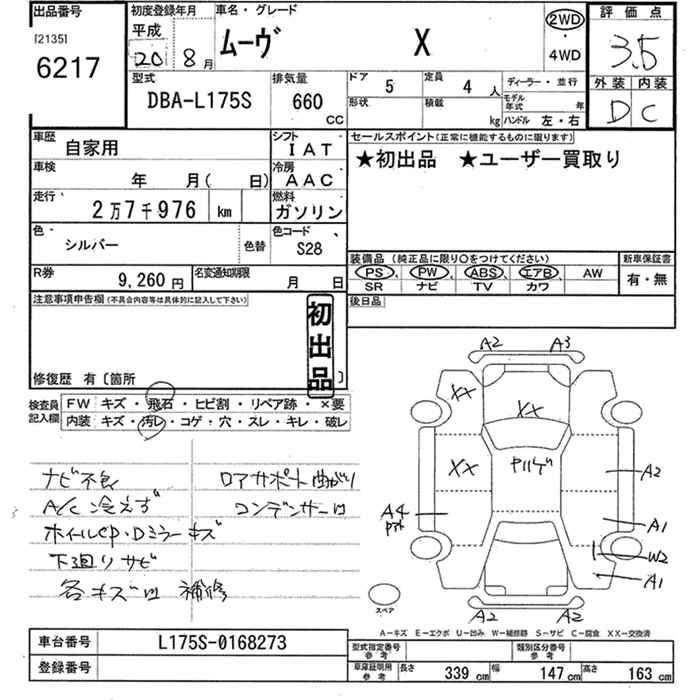 出品番号 初度登録年月 車名・グレード 評価点
[2135] 平成
6217 20 年 8 月 ムーヴ X 2WD ・ 4WD 3.5
外装 内装
D C
型式 排気量 ドア 5 定員 4 人 ディーラー・並行
DBA-L175S 660 CC 形状 積載 kg モデル年式 年
ハンドル 左・右
車歴 自家用 シフト IAT セールスポイント(正常に機能するものに限ります)
★初出品 ★ユーザー買取り
車検 年 月( 日) 冷房 AAC
走行 2万7千976 km 燃料 ガソリン
色 シルバー 色替 色コード S28
装備品 (純正品に限り○をつけてください) 新車保証書
PS、 PW、 ABS、 エアB、 AW 有・無
SR ナビ TV カワ
R券 9,260 円 名変通知期限 月 日
注意事項申告欄(不具合内容等は具体的に記入して下さい) 後日品
初出品
修復歴 有〔箇所 〕
検査員記入欄 FW キズ・飛石・ヒビ割・リペア跡・×要
内装 キズ・汚レ・コゲ・穴・スレ・キレ・破レ
ナビ不良 ロアサポート曲がり
A/C 冷えず コンデンサー凹
ホイールcp・Dミラーキズ
下廻りサビ
各キズ凹 補修
A2 A3
XX
XX
XX
A2
A4
A1
W2
A1
A2 A2
スペア
A-キズ E-エクボ U-凹み W-補修跡 S-サビ C-腐食 XX-交換済
車台番号 L175S-0168273
登録番号
型式指定番号 参考 類別区分番号 参考
車庫証明用 参考 長さ 339 cm 幅 147 cm 高さ 163 cm